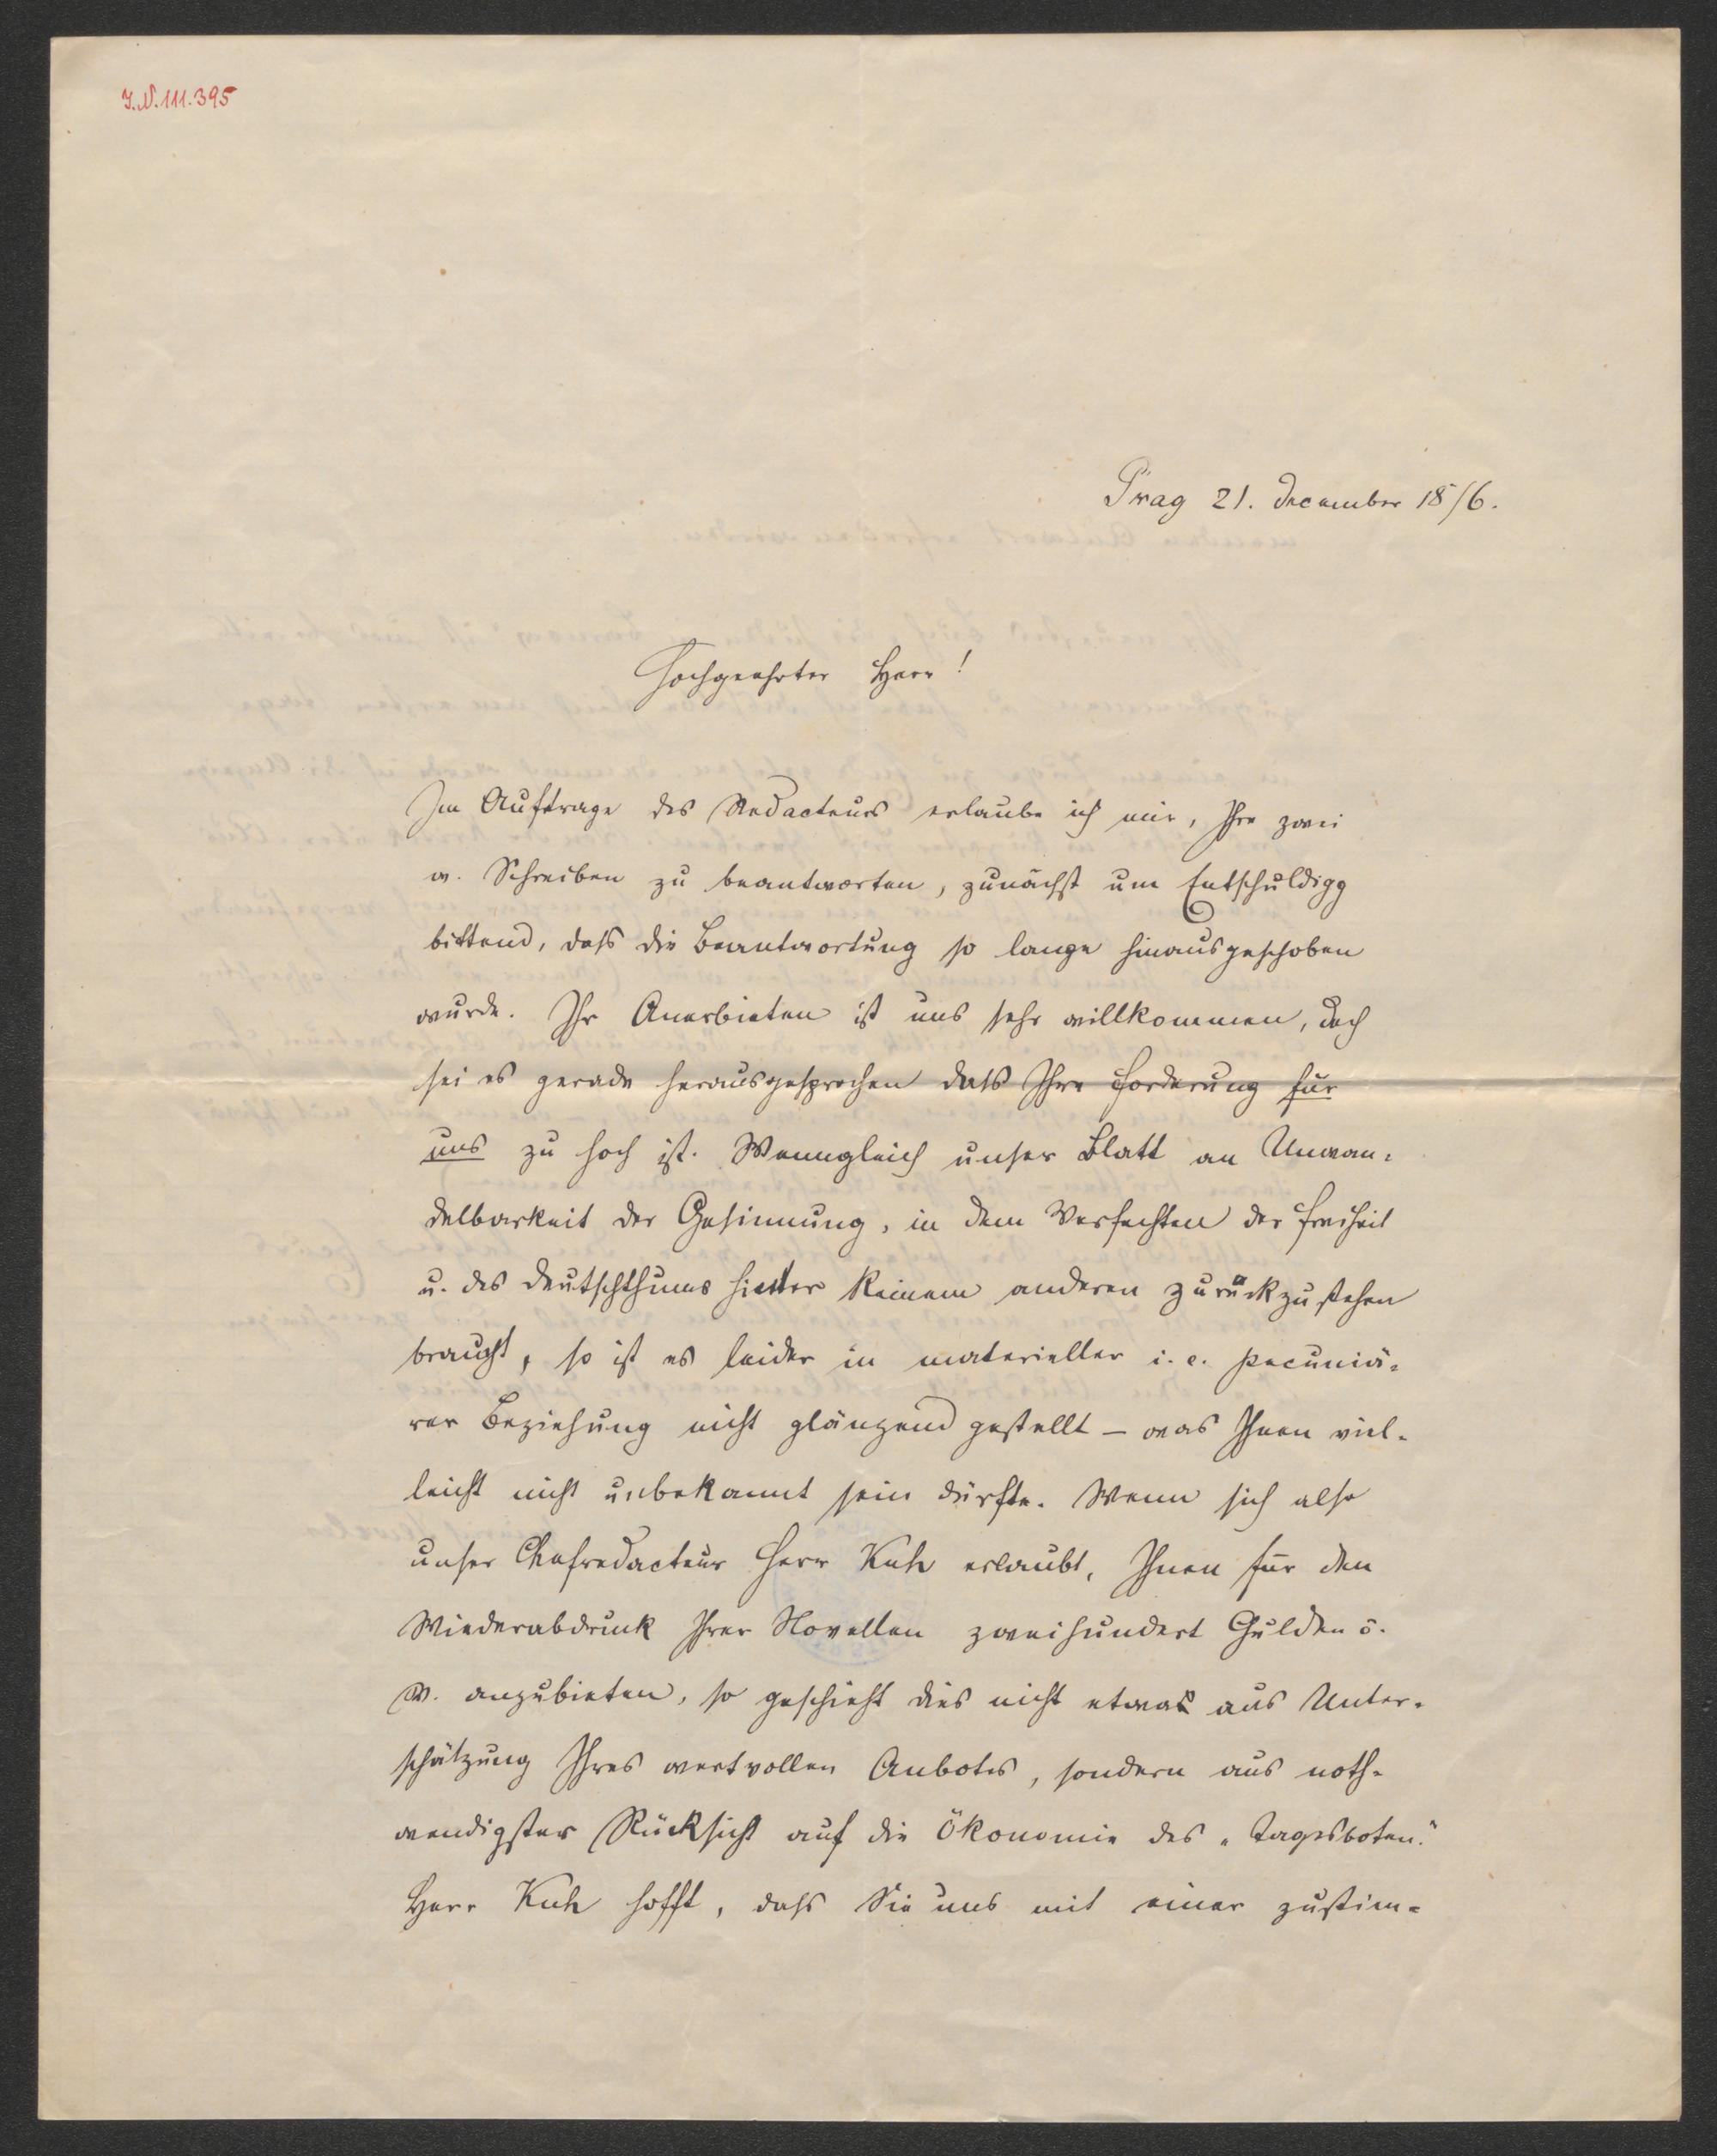 I.N.111.395
Prag 21. December 1876.
Hochgeehrter Herr!
Im Auftrage des Redacteurs erlaube ich mir, Ihre zwei
w. Schreiben zu beantworten, zunächst um Entschuldigg
bittend, daß die Beantwortung so lange hinausgeschoben
wurde. Ihr Anerbieten ist uns sehr willkommen, doch
sei es gerade herausgesprochen daß Ihre Forderung für
uns zu hoch ist. Wenngleich unser Blatt an Unwan-
delbarkeit der Gesinnung, in dem Verfechten der Freiheit
u. des Deutschthums hinter keinem anderen zurückzustehen
braucht, so ist es leider in materieller i. e. pecuniä-
rer Beziehung nicht glänzend gestellt – was Ihnen viel-
leicht nicht unbekannt sein dürfte. Wenn sich also
unser Chefredacteur Herr Kuh erlaubt, Ihnen für den
Wiederabdruck Ihrer Novellen zweihundert Gulden ö.
W. anzubieten, so geschieht dies nicht etwa aus Unter-
schätzung Ihres wertvollen Anbotes, sondern aus noth-
wendigster Rücksicht auf die Ökonomie des „Tagesboten."
Herr Kuh hofft, daß Sie uns mit einer zustim-